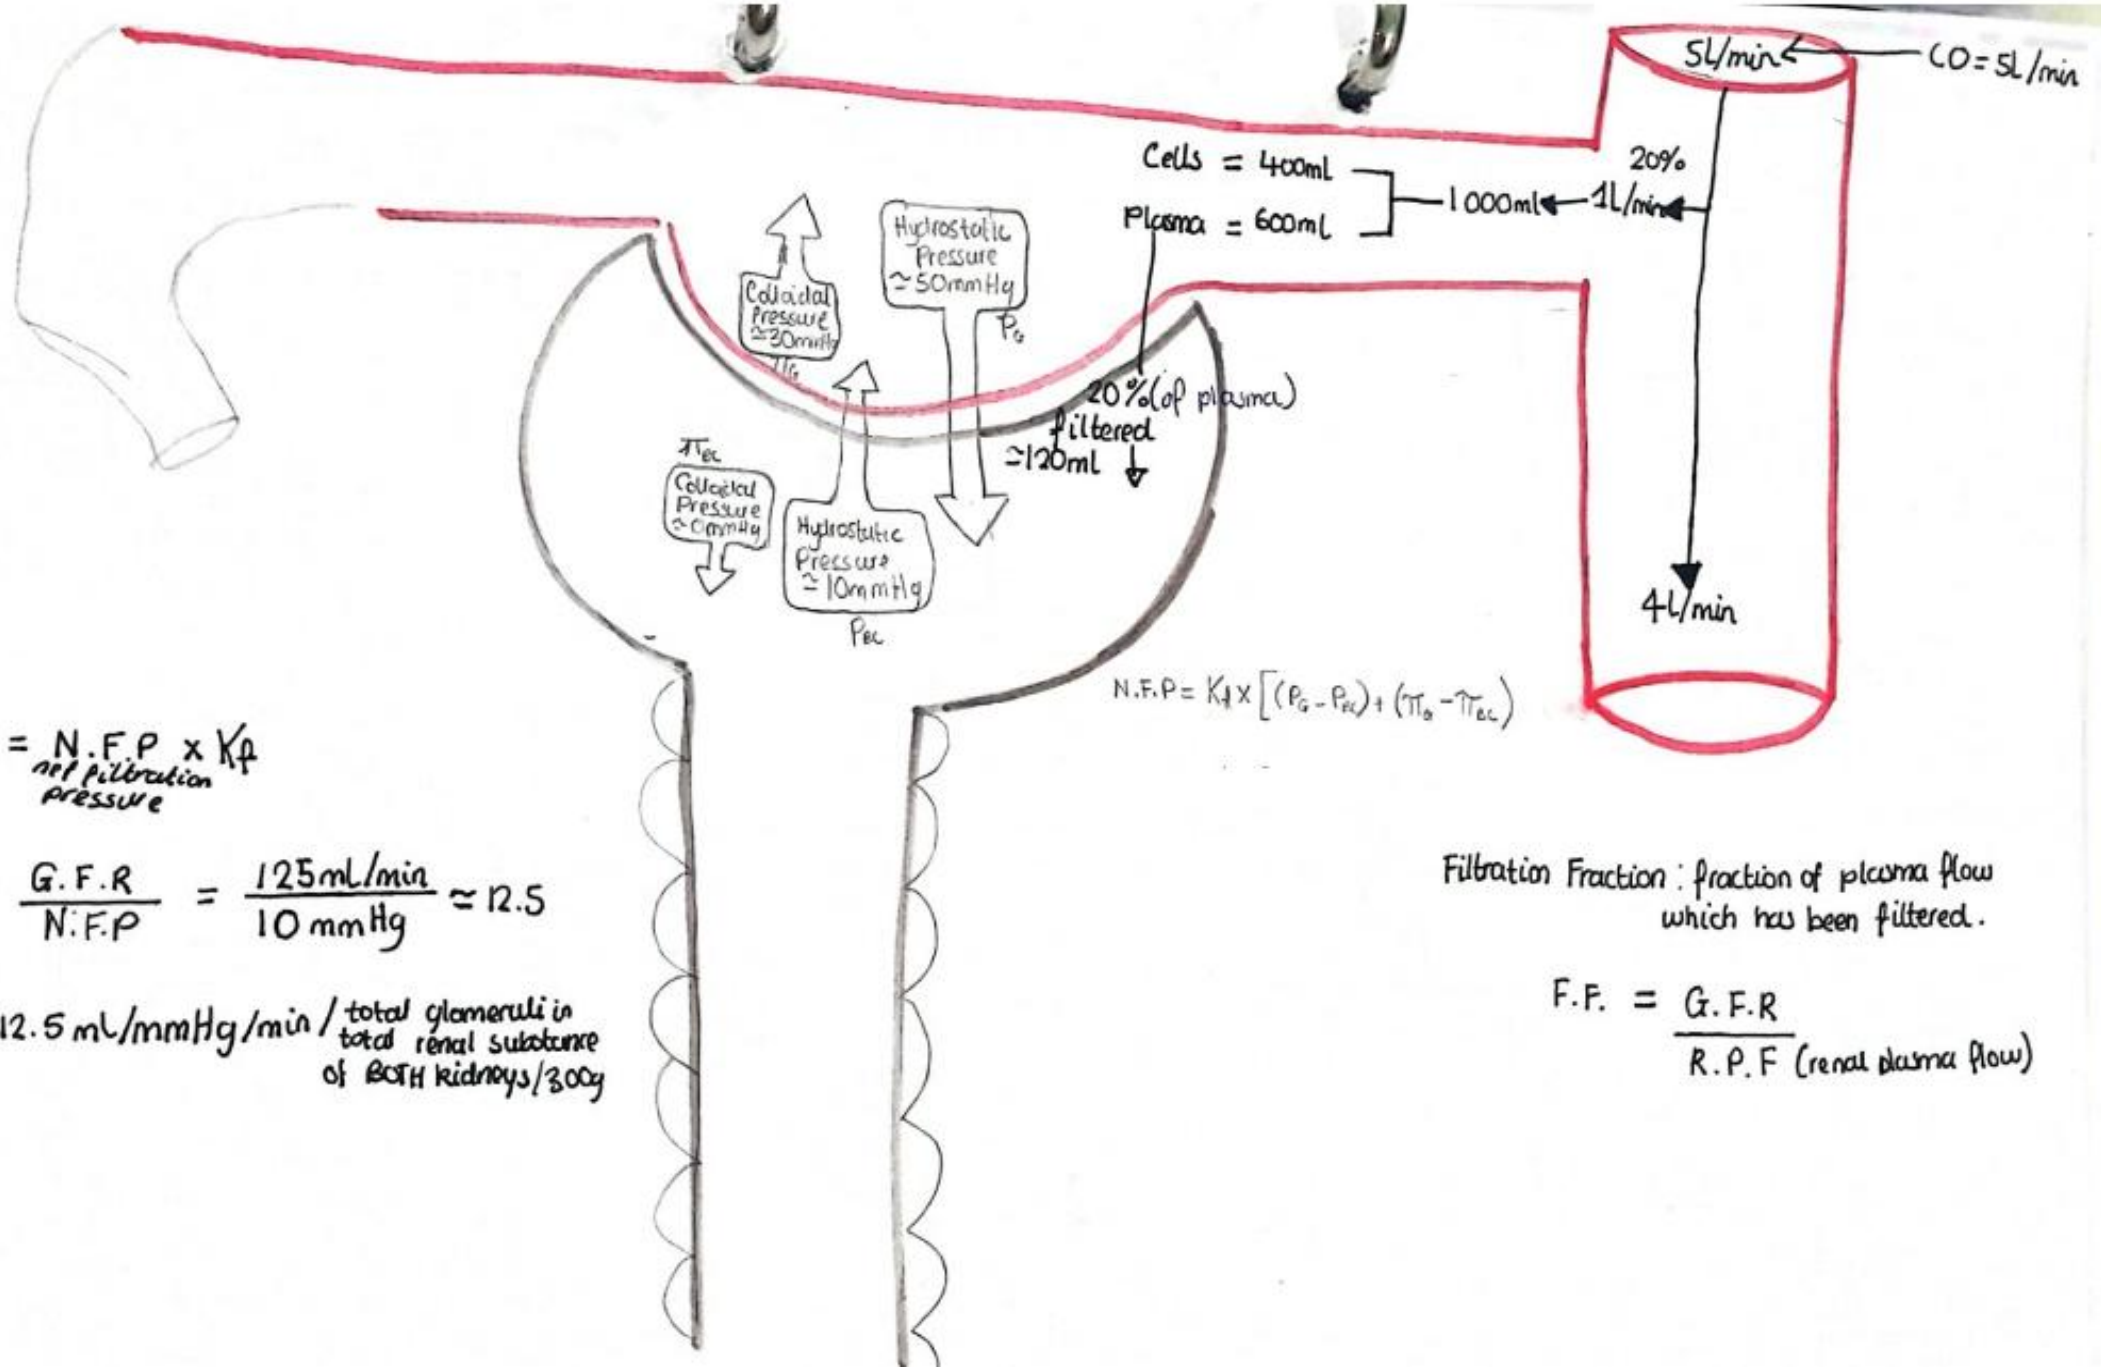 5L/min
CO = 5L/min
20%
1L/min
1000ml
Cells = 400ml
Plasma = 600ml
4L/min
Hydrostatic
Pressure
≃50mmHg
PG
Colloidal
Pressure
≃30mmHg
πG
20% (of plasma)
filtered
≃120ml
πBC
Colloidal
Pressure
≃0mmHg
Hydrostatic
Pressure
≃10mmHg
PBC
N.F.P = Kf x [(PG - PBC) + (πG - πBC)
= N.F.P x Kf
net filtration
pressure
G.F.R
N.F.P
= 125mL/min
10 mmHg
≃ 12.5
12.5 ml/mmHg/min / total glomeruli in
total renal substance
of BOTH kidneys/300g
Filtration Fraction : fraction of plasma flow
which has been filtered.
F.F. = G.F.R
R.P.F (renal plasma flow)